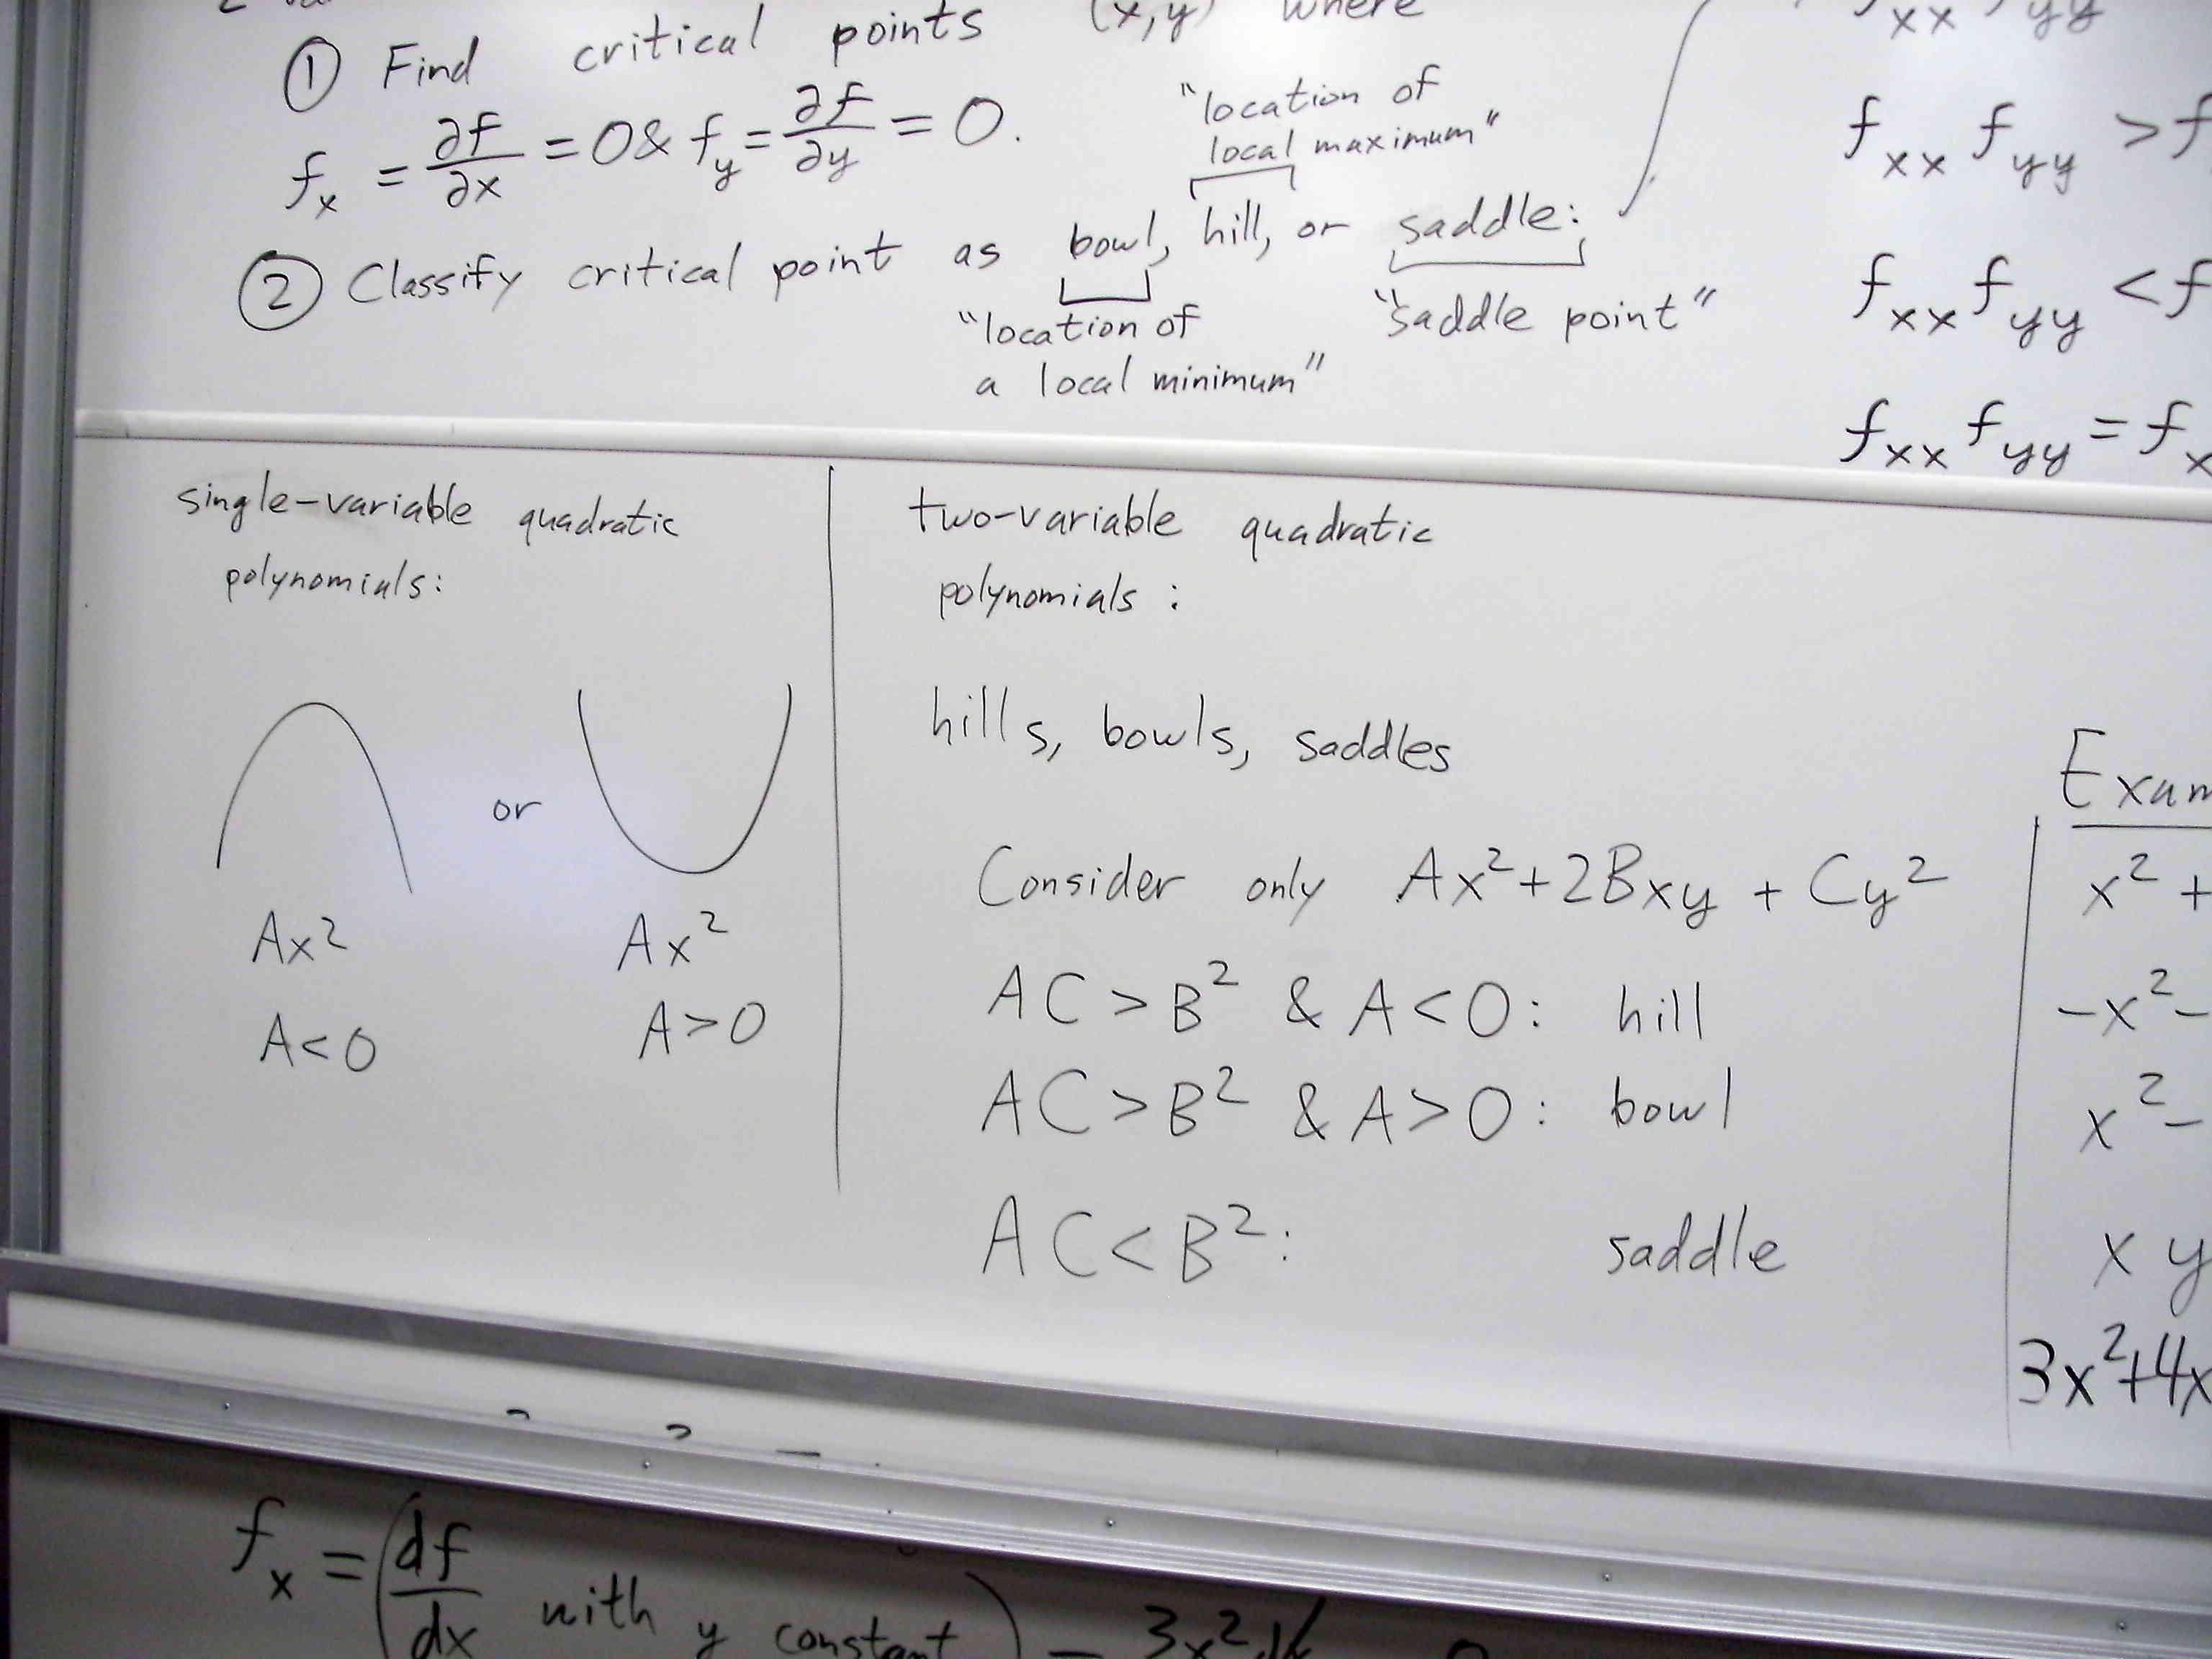 ① Find critical points (x,y) where
f_x = ∂f/∂x = 0 & f_y = ∂f/∂y = 0.
"location of
local maximum"
② Classify critical point as bowl, hill, or saddle:
"location of
a local minimum"
"saddle point"
f_xx f_yy
f_xx f_yy > f
f_xx f_yy < f
f_xx f_yy = f_x
single-variable quadratic
polynomials:
or
Ax²
A<0
Ax²
A>0
two-variable quadratic
polynomials:
hills, bowls, saddles
Consider only Ax²+2Bxy + Cy²
AC>B² & A<0: hill
AC>B² & A>0: bowl
AC<B²: saddle
Exam
x² +
-x² -
x² -
xy
3x²+4x
f_x = (df/dx with y constant) = 3x²